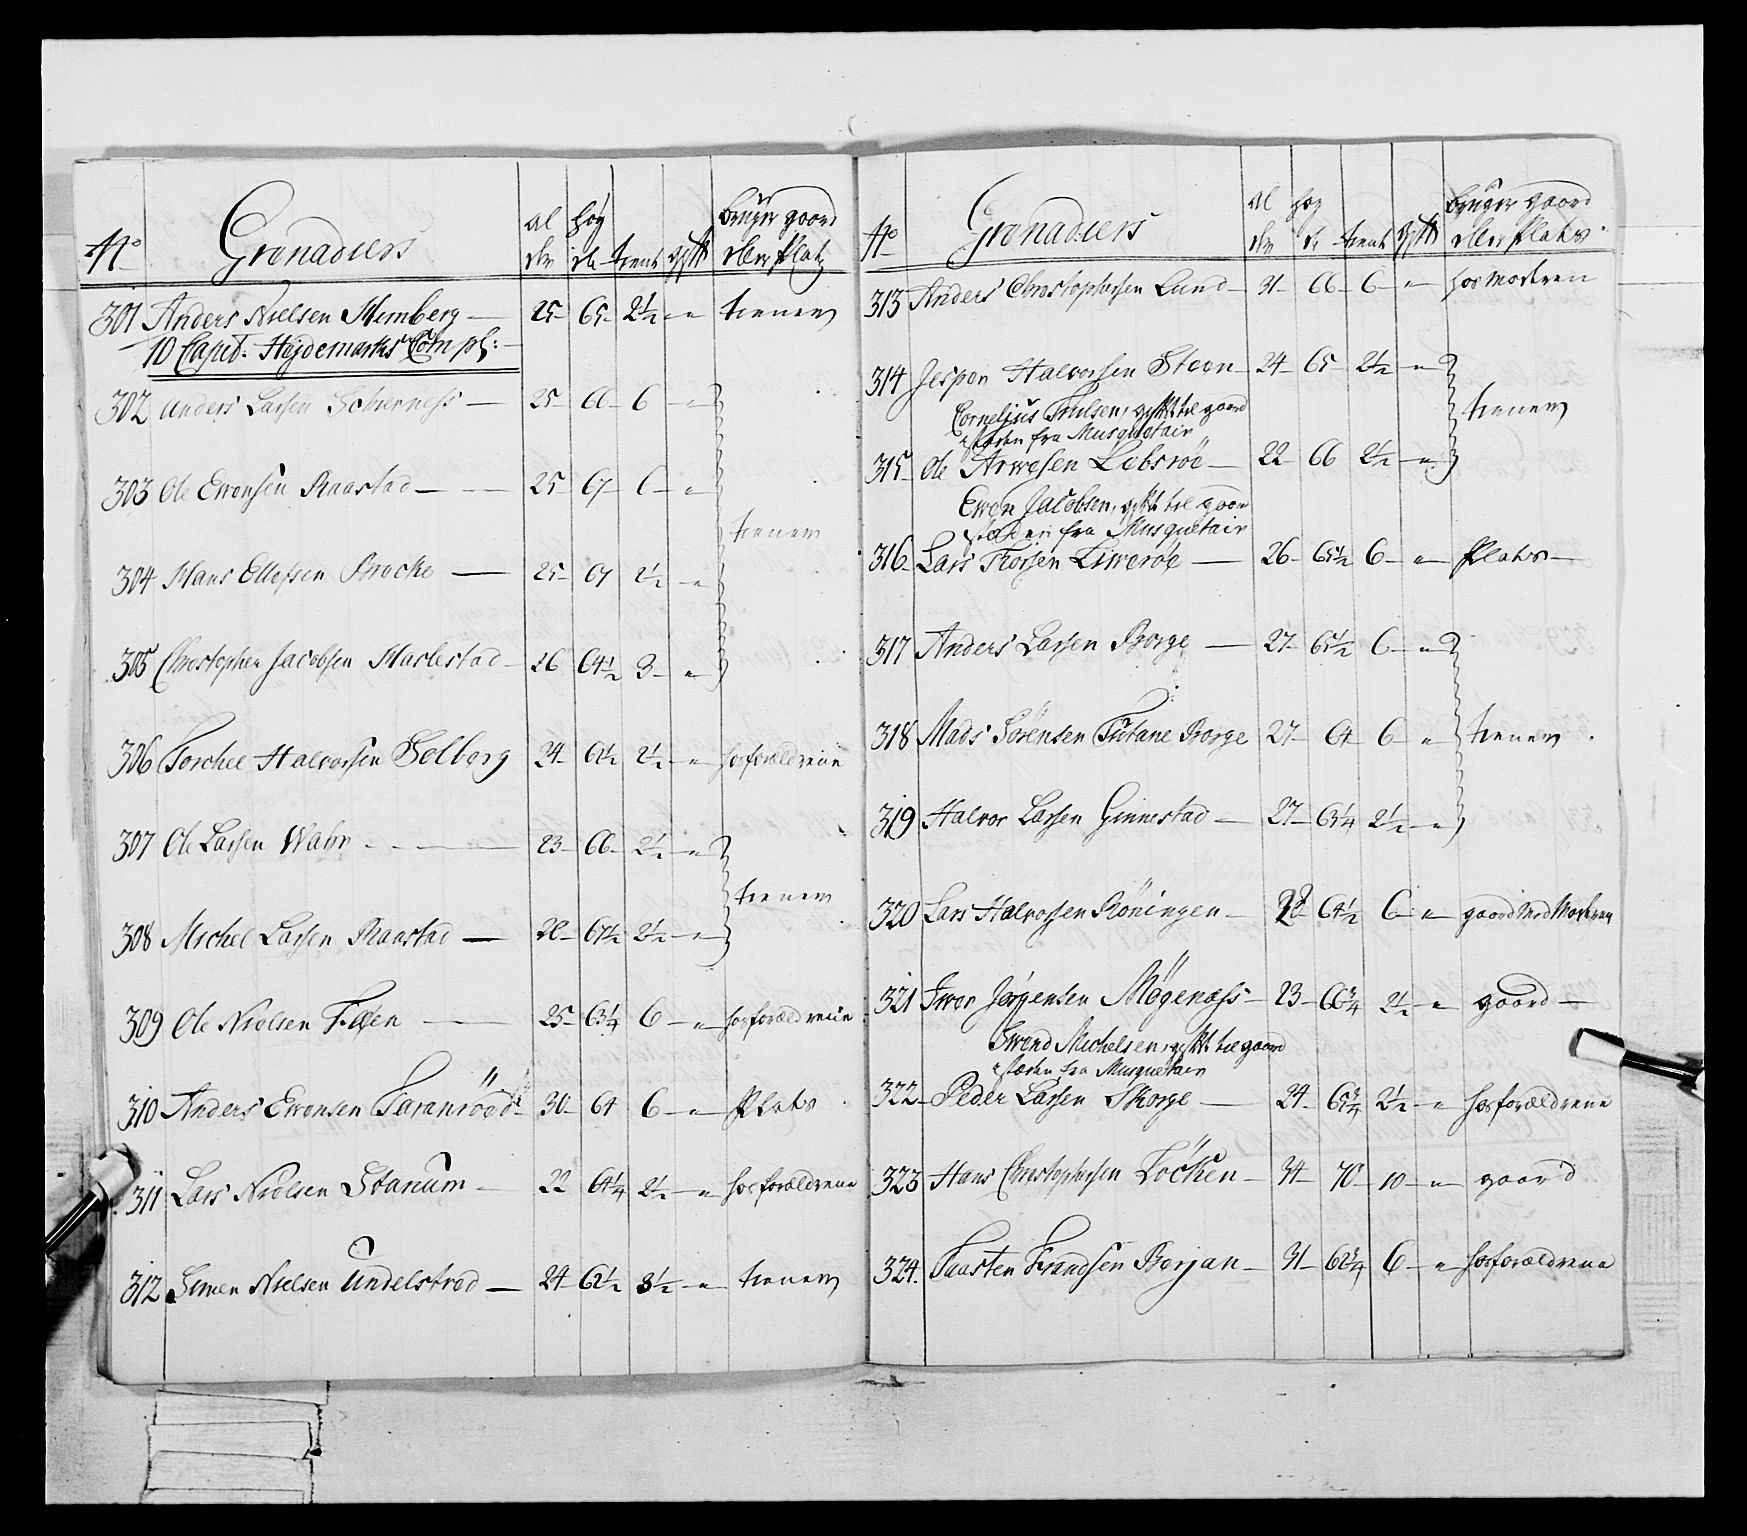 No Grenadiers al der høy de tient gift bruger gaard eller Platz
301 Anders Nielsen Memberg — 25 65 2½ " tiener
10 Capit: Hejdemarks Comp:
302 Anders Larsen Scherness — 25 66 6 "
303 Ole Evensen Raastad — 25 67 6 "
tiener
304 Hans Ellefsen Brecke — 25 67 2½ "
305 Christopher Jacobsen Haslestad 26 64½ 3 "
306 Torchel Halvorsen Solberg 24 61½ 2½ " hos forældrene
307 Ole Larsen Wahr — 23 66 2½ "
tiener
308 Michel Larsen Raastad — 22 67½ 2½ "
309 Ole Nielsen Foen — 25 63¼ 6 " hos forældrene
310 Anders Evensen Taranrööd 30 64 6 " Plats
311 Lars Nielsen Stanum 22 61¼ 2½ " hos forældrene
312 Simen Nielsen Undelstved — 24 62½ 3½ " tiener
No Grenadiers al der høy de tient gift bruger gaard eller Plats
313 Anders Christophersen Lund 31 66 6 " hos Moderen
314 Jesper Halvorsen Steen 24 65 2½ "
Cornelius Trulsen, gaaet til gaard
tiener
støden fra Musquetair
315 Ole Arvesen Lebsröe 22 66 2½ "
Even Jacobsen, gaaet til gaard
støden fra Musquetair
316 Lars Thorsen Liweröe — 26 65½ 6 " Plats
317 Anders Larsen Borge — 27 65½ 6 "
318 Mads Sörensen Futane Borge 27 64 6 " tiener
319 Halvor Larsen Ginnestad — 27 63¼ 2½ "
320 Lars Halvorsen Röningen 28 64½ 6 " gaard med Moderen
321 Iver Jörgensen Mögenæss 23 66¾ 2½ " gaard
Svend Michelsen, gaaet til gaard
støden fra Musquetair
322 Peder Larsen Skorge 24 65¾ 2½ " hos forældrene
323 Hans Christophersen Löcken 34 70 10 " gaard
324 Taasten Frandsen Berjan 31 62¾ 6 " hos forældrene